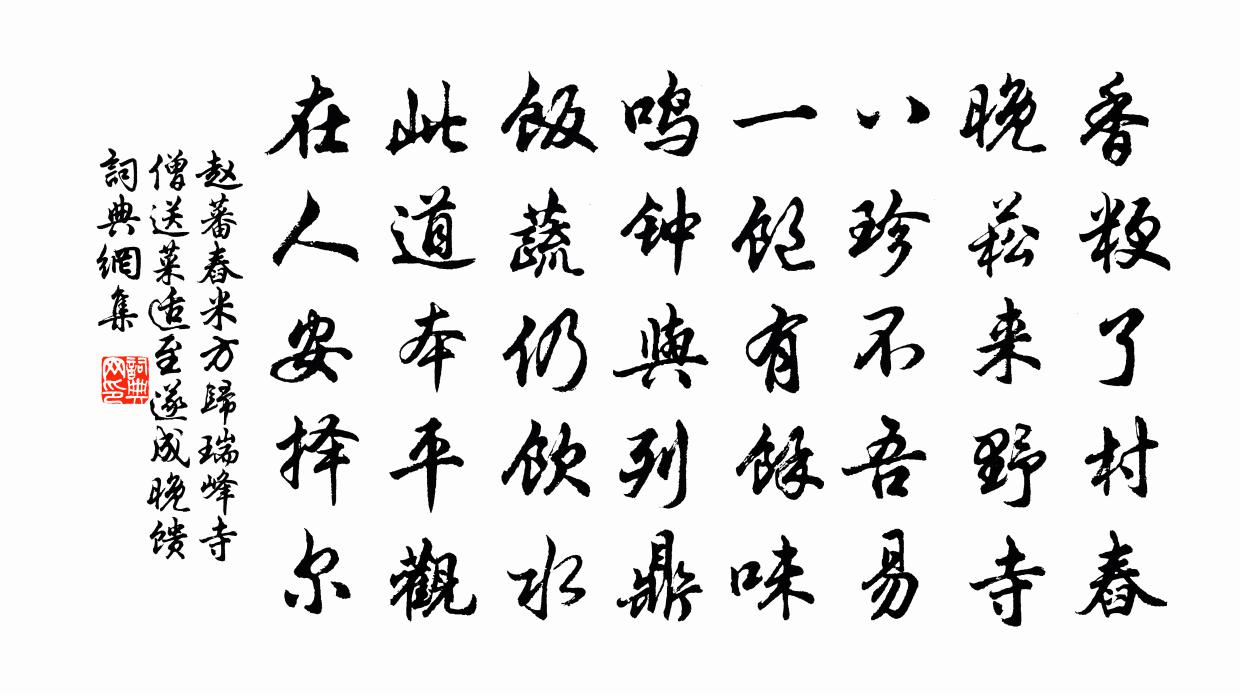 香粳了村舂
晚菘来野寺
八珍不吾易
一饱有餘味
鸣钟與列鼎
饭蔬仍饮水
此道本平觀
在人安择尔
赵蕃舂米方歸瑞峰寺
僧送菜适至遂成晚馈
詞典網集
詞典网印